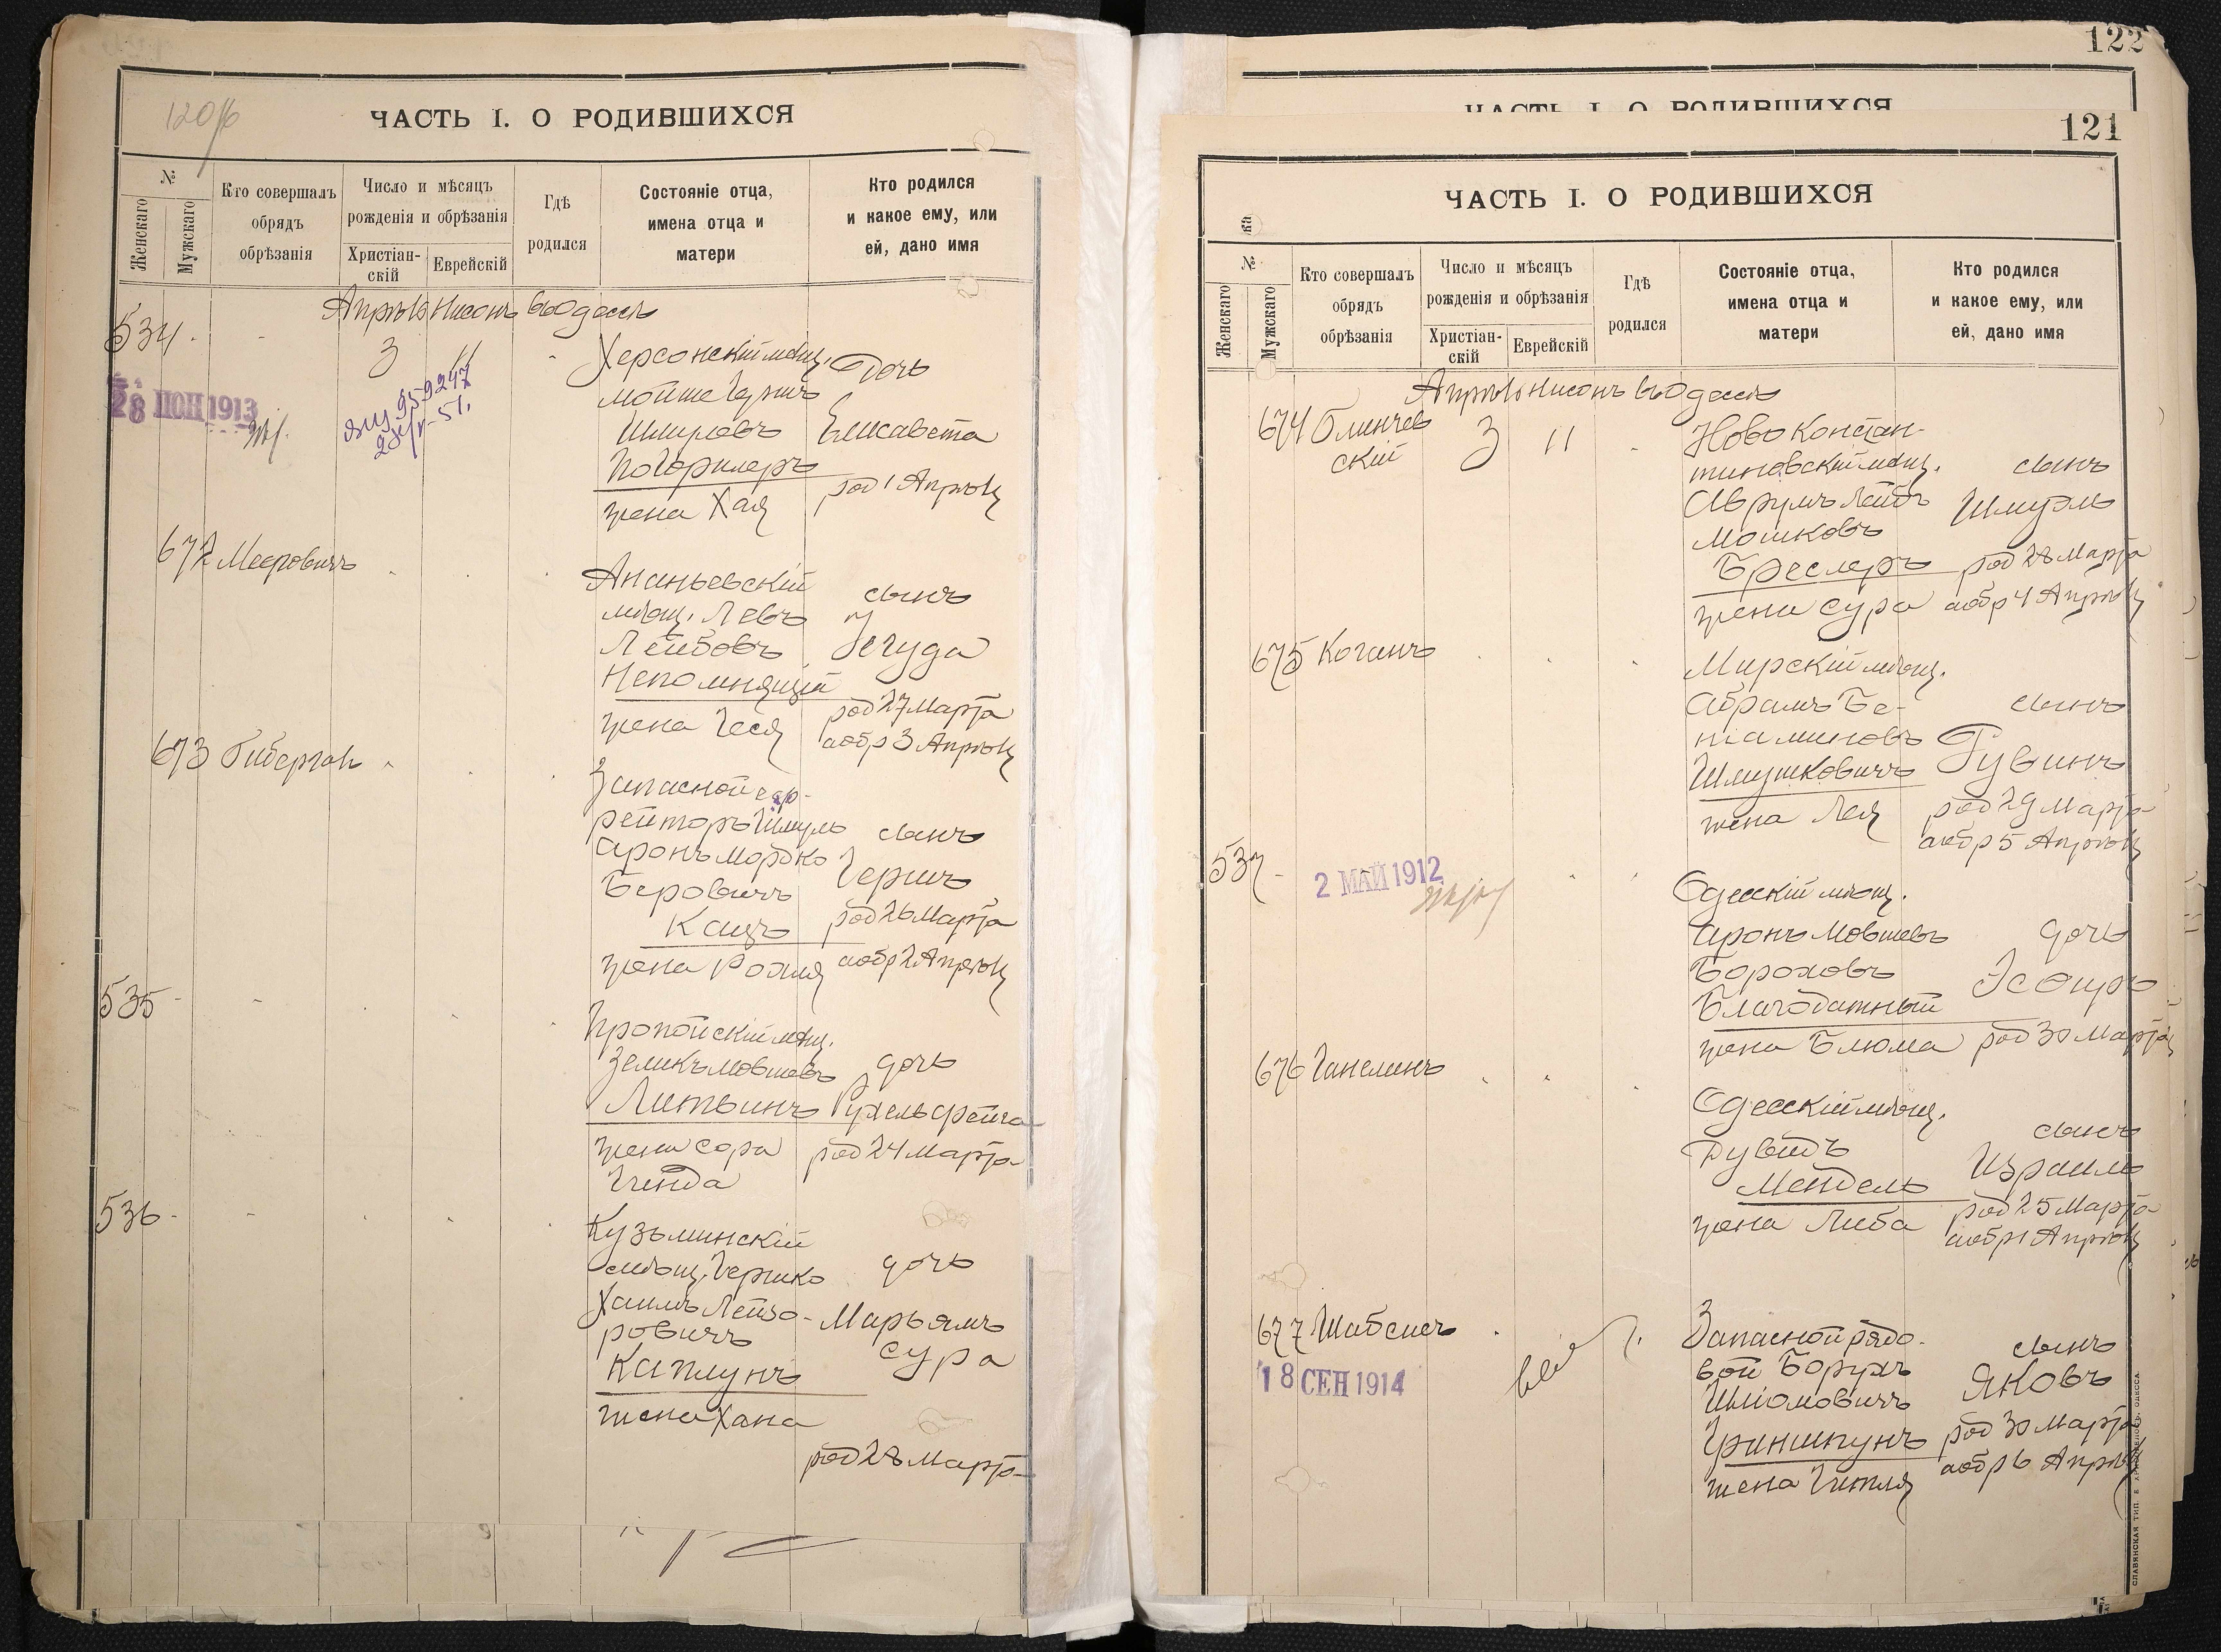 120/б
ЧАСТЬ I. О РОДИВШИХСЯ
№
Женскаго
Мужскаго
Кто совершалъ
обрядъ
обрѣзанія
Число и мѣсяцъ
рожденія и обрѣзанія
Христіан-
скій
Еврейскій
Гдѣ
родился
Состояніе отца,
имена отца и
матери
Кто родился
и какое ему, или
ей, дано имя
Апрѣль Нисонъ въ Одессѣ
534. 3 11
28 ІЮН 1913
Херсонскій мѣщ.
Мойше Гершъ
Шмулевъ
Погорилеръ
жена Хая
дочь
Елисавета
род 1 Апрѣля
672 Мееровичъ
Ананьевскій
мѣщ. Левъ
Лейбовъ
Непомнящій
жена Геся
сынъ
Іегуда
род 27 Марта
а обр 3 Апрѣля
673 Гиберган
Запасной еф-
рейторъ Шмуль
Аронъ Мордко
Беровичъ
Кацъ
жена Рохля
сынъ
Гершъ
род 26 Марта
а обр 2 Апрѣля
535
Пропойскій мѣщ.
Зеликъ Мовшевъ
Литвинъ
жена Сора
Гинда
дочь
Рухель Фейга
род 24 Марта
536
Кузьминскій
мѣщ. Гершко
Хаимъ Лейзо-
ровичъ
Каплунъ
жена Хана
дочь
Марьямъ
Сура
род 28 Марта
122
ЧАСТЬ I. О РОДИВШИХСЯ
121
ЧАСТЬ I. О РОДИВШИХСЯ
№
Женскаго
Мужскаго
Кто совершалъ
обрядъ
обрѣзанія
Число и мѣсяцъ
рожденія и обрѣзанія
Христіан-
скій
Еврейскій
Гдѣ
родился
Состояніе отца,
имена отца и
матери
Кто родился
и какое ему, или
ей, дано имя
Апрѣль Нисонъ въ Одессѣ
674 Блинчев
ский
3 11
Ново Констан-
тиновскій мѣщ.
Аврумъ Лейбъ
Мошковъ
Бреслеръ
жена Сура
сынъ
Шмуэль
род 28 Марта
а обр 4 Апрѣля
675 Коганъ
Мирскій мѣщ.
Абрамъ Бе-
ніаминовъ
Шмушковичъ
жена Лея
сынъ
Рувинъ
род 29 Марта
а обр 5 Апрѣля
537
2 МАЙ 1912
Одесскій мѣщ.
Аронъ Мовшевъ
Бороховъ
Благодатный
жена Блюма
дочь
Эсфирь
род 30 Марта
676 Ганелинъ
Одесскій мѣщ.
Дувидъ
Мендель
жена Либа
сынъ
Израиль
род 25 Марта
а обр 1 Апрѣля
677 Шабсисъ
18 СЕН 1914
Запасной рядо-
вой Борухъ
Шліомовичъ
Гриншпунъ
жена Гитля
сынъ
Яковъ
род 30 Марта
а обр 6 Апрѣля